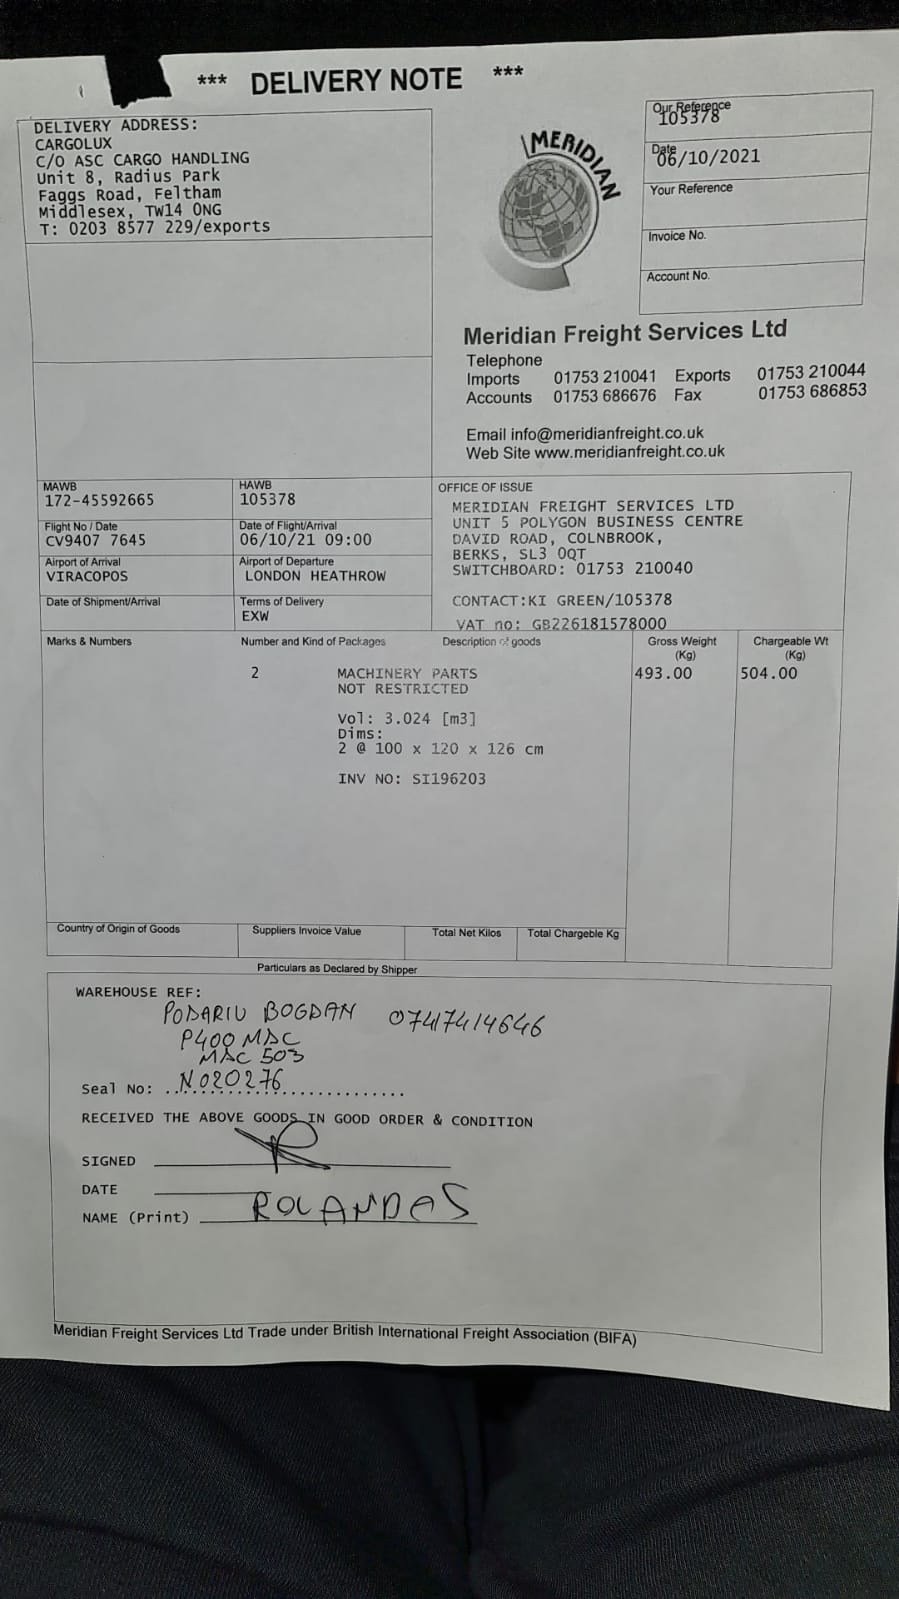 *** DELIVERY NOTE ***
DELIVERY ADDRESS:
CARGOLUX
C/O ASC CARGO HANDLING
Unit 8, Radius Park
Faggs Road, Feltham
Middlesex, TW14 0NG
T: 0203 8577 229/exports
MERIDIAN
Our Reference
105378
Date
06/10/2021
Your Reference
Invoice No.
Account No.
Meridian Freight Services Ltd
Telephone
Imports 01753 210041 Exports 01753 210044
Accounts 01753 686676 Fax 01753 686853
Email info@meridianfreight.co.uk
Web Site www.meridianfreight.co.uk
MAWB
172-45592665
HAWB
105378
Flight No / Date
CV9407 7645
Date of Flight/Arrival
06/10/21 09:00
Airport of Arrival
VIRACOPOS
Airport of Departure
LONDON HEATHROW
Date of Shipment/Arrival
Terms of Delivery
EXW
OFFICE OF ISSUE
MERIDIAN FREIGHT SERVICES LTD
UNIT 5 POLYGON BUSINESS CENTRE
DAVID ROAD, COLNBROOK,
BERKS, SL3 0QT
SWITCHBOARD: 01753 210040
CONTACT:KI GREEN/105378
VAT no: GB226181578000
Marks & Numbers
Number and Kind of Packages
Description of goods
Gross Weight
(Kg)
Chargeable Wt
(Kg)
2 MACHINERY PARTS 493.00 504.00
NOT RESTRICTED
Vol: 3.024 [m3]
Dims:
2 @ 100 x 120 x 126 cm
INV NO: SI196203
Country of Origin of Goods
Suppliers Invoice Value
Total Net Kilos
Total Chargeble Kg
Particulars as Declared by Shipper
WAREHOUSE REF:
PODARIU BOGDAN 07417414646
P400 MAC
MAC 503
Seal No: N020276
RECEIVED THE ABOVE GOODS IN GOOD ORDER & CONDITION
SIGNED
DATE
NAME (Print) ROLANDAS
Meridian Freight Services Ltd Trade under British International Freight Association (BIFA)